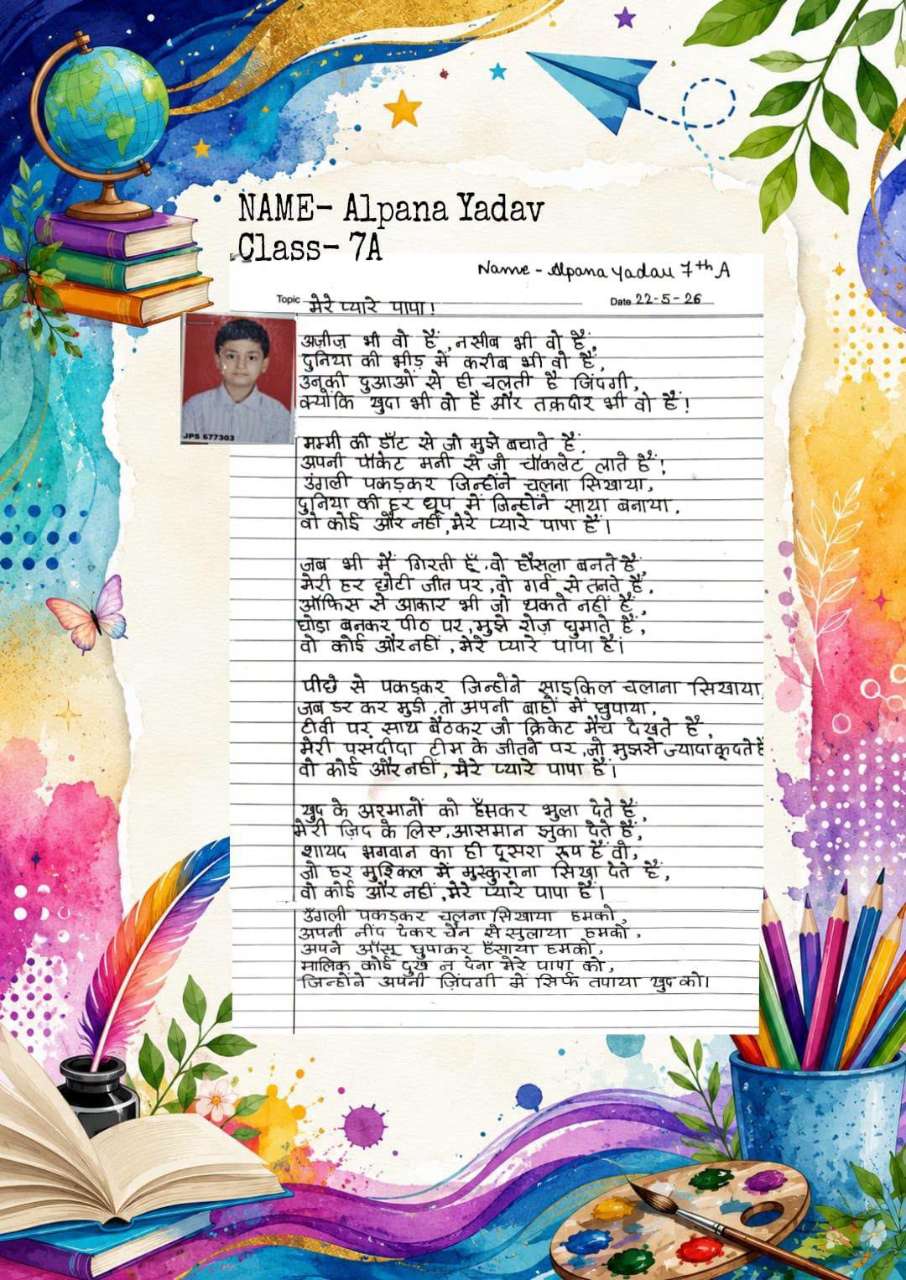 NAME- Alpana Yadav
Class- 7A
Name - Alpana Yadav 7th A
Topic मेरे प्यारे पापा!
Date 22-5-26
अज़ीज भी वो हैं, नसीब भी वो हैं,
दुनिया की भीड़ में करीब भी वो हैं,
उनकी दुआओं से ही चलती है जिंदगी,
क्योंकि खुदा भी वो है और तक़दीर भी वो हैं!
JPS 677303
मम्मी की डाँट से जो मुझे बचाते हैं.
अपनी पॉकेट मनी से जो चॉकलेट लाते हैं!
उंगली पकड़कर जिन्होंने चलना सिखाया,
दुनिया की हर धूप में जिन्होंने साया बनाया.
वो कोई और नहीं, मेरे प्यारे पापा हैं।
जब भी मैं गिरती हूँ, वो हौसला बनते हैं,
मेरी हर छोटी जीत पर, वो गर्व से तनते हैं,
ऑफिस से आकार भी जो थकते नहीं हैं,
घोडा बनकर पीठ पर, मुझे रोज़ घुमाते हैं,
वो कोई और नहीं, मेरे प्यारे पापा हैं।
पीछे से पकड़कर जिन्होंने साइकिल चलाना सिखाया,
जब डर कर मुडी, तो अपनी बाहों में छुपाया,
टीवी पर साथ बैठकर जो क्रिकेट मैच देखते हैं,
मेरी पसंदीदा टीम के जीतने पर, जो मुझसे ज्यादा कूदते हैं
वो कोई और नहीं, मेरे प्यारे पापा हैं।
खुद के अरमानों को हँसकर भुला देते हैं,
मेरी ज़िद के लिए, आसमान झुका देते हैं,
शायद भगवान का ही दूसरा रूप हैं वो,
जो हर मुश्किल में मुस्कुराना सिखा देते हैं,
वो कोई और नहीं, मेरे प्यारे पापा हैं।
उँगली पकड़कर चलना सिखाया हमको,
अपनी नींद देकर चैन से सुलाया हमको,
अपने आँसू छुपाकर हँसाया हमको,
मालिक कोई दुख न देना मेरे पापा को,
जिन्होंने अपनी ज़िंदगी में सिर्फ तपाया खुद को।